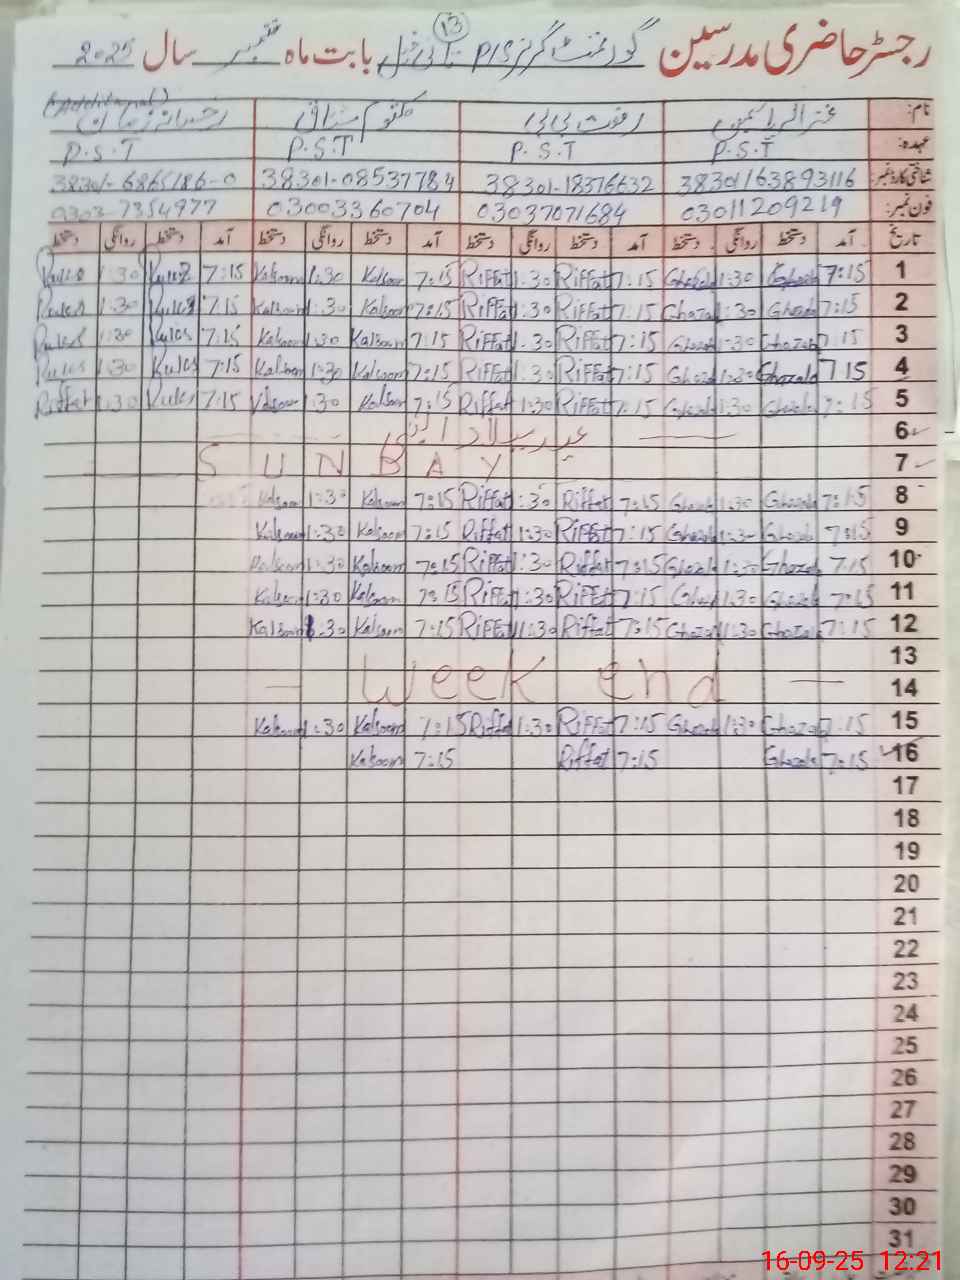 13
رجسٹر حاضری مدرسین گورنمنٹ گرلز P/S خیل بابت ماہ ستمبر سال 2025
(Additional)
نام: غزالہ یاسمین رفعت بی بی کلثوم مشتاق رخسانہ
عہدہ: P.S.T P.S.T P.S.T P.S.T
شناختی کارڈ نمبر: 3830163893116 38301-18376632 38301-08537784 38301-6865186-0
فون نمبر: 03011209219 03037071684 03003360704 0303-7354977
تاریخ آمد دستخط روانگی دستخط آمد دستخط روانگی دستخط آمد دستخط روانگی دستخط آمد دستخط روانگی دستخط
1 7:15 Ghazala 1:30 Ghazala 7:15 Riffat 1:30 Riffat 7:15 Kalsoom 1:30 Kalsoom 7:15 1:30
2 7:15 Ghazala 1:30 Ghazala 7:15 Riffat 1:30 Riffat 7:15 Kalsoom 1:30 Kalsoom 7:15 1:30
3 7:15 Ghazala 1:30 Ghazala 7:15 Riffat 1:30 Riffat 7:15 Kalsoom 1:30 Kalsoom 7:15 1:30
4 7:15 Ghazala 1:30 Ghazala 7:15 Riffat 1:30 Riffat 7:15 Kalsoom 1:30 Kalsoom 7:15 1:30
5 7:15 Ghazala 1:30 Ghazala 7:15 Riffat 1:30 Riffat 7:15 Kalsoom 1:30 7:15 1:30 Riffat
6 عید میلاد النبی
7 SUNDAY
8 7:15 Ghazala 1:30 Ghazala 7:15 Riffat 1:30 Riffat 7:15 Kalsoom 1:30 Kalsoom
9 7:15 Ghazala 1:30 Ghazala 7:15 Riffat 1:30 Riffat 7:15 Kalsoom 1:30 Kalsoom
10 7:15 Ghazala 1:30 Ghazala 7:15 Riffat 1:30 Riffat 7:15 Kalsoom 1:30 Kalsoom
11 7:15 Ghazala 1:30 Ghazala 7:15 Riffat 1:30 Riffat 7:15 Kalsoom 1:30 Kalsoom
12 7:15 Ghazala 1:30 Ghazala 7:15 Riffat 1:30 Riffat 7:15 Kalsoom 1:30 Kalsoom
13
14 Week end
15 7:15 Ghazala 1:30 Ghazala 7:15 Riffat 1:30 Riffat 7:15 Kalsoom 1:30 Kalsoom
16 7:15 Ghazala 7:15 Riffat 7:15 Kalsoom
17
18
19
20
21
22
23
24
25
26
27
28
29
30
31
16-09-25 12:21